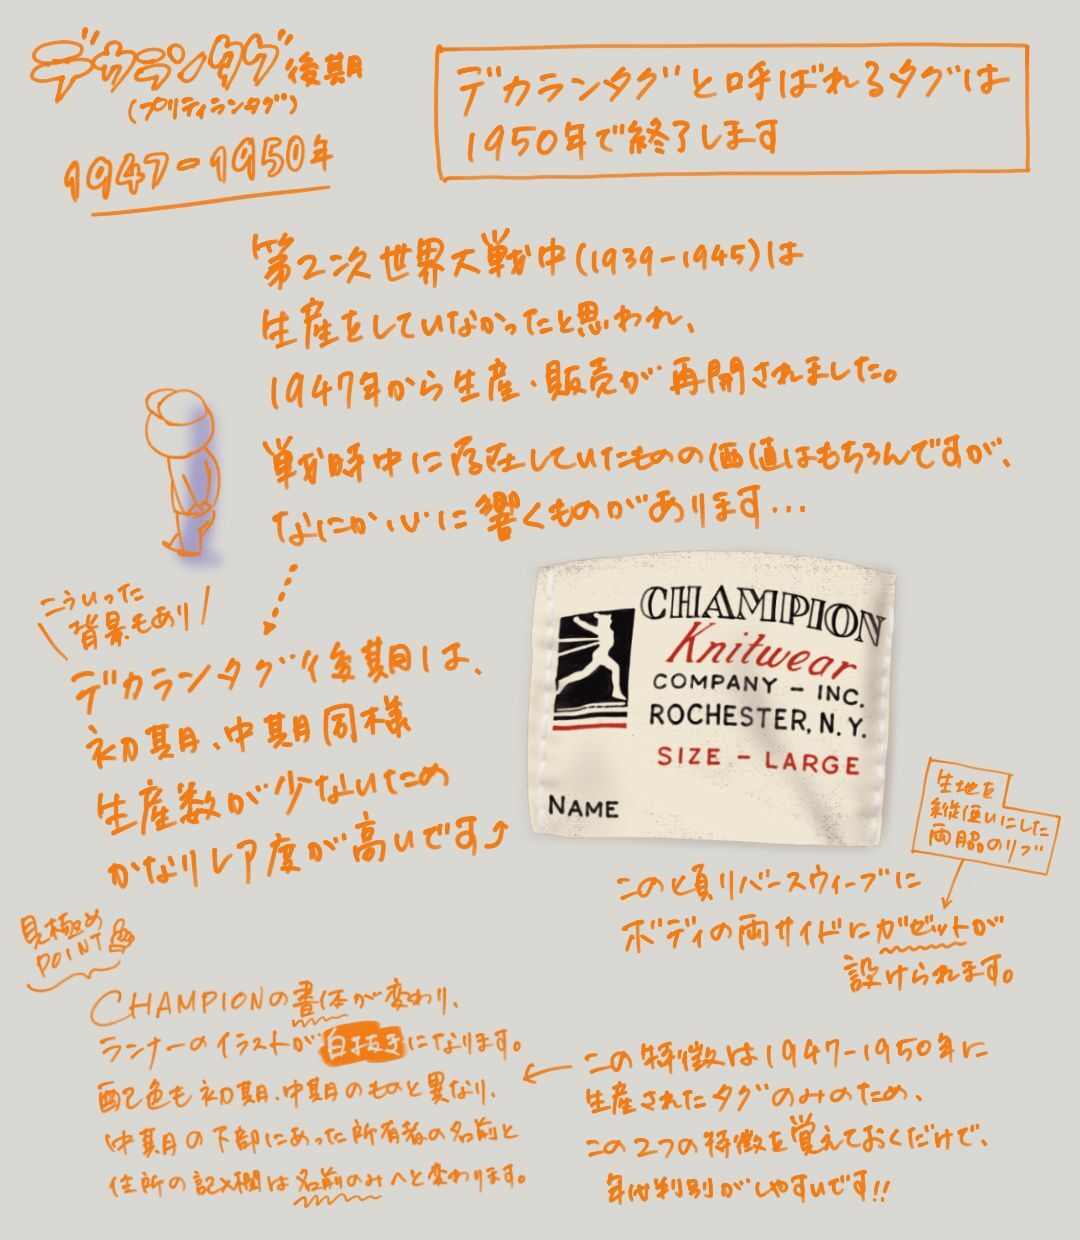 デカランタグ後期
(プリティランタグ)
1947-1950年
デカランタグと呼ばれるタグは
1950年で終了します
第2次世界大戦中(1939-1945)は
生産をしていなかったと思われ、
1947年から生産・販売が再開されました。
戦時中に存在していたものの価値はもちろんですが、
なにか心に響くものがあります…
こういった
背景もあり
デカランタグ後期は、
初期、中期同様
生産数が少ないため
かなりレア度が高いです
CHAMPION
Knitwear
COMPANY - INC.
ROCHESTER, N.Y.
SIZE - LARGE
NAME
生地を
縦使いにした
両脇のリブ
この頃リバースウィーブに
ボディの両サイドにガゼットが
設けられます。
見極め
POINT
CHAMPIONの書体が変わり、
ランナーのイラストが白抜きになります。
配色も初期、中期のものと異なり、
中期の下部にあった所有者の名前と
住所の記入欄は名前のみへと変わります。
この特徴は1947-1950年に
生産されたタグのみのため、
この2つの特徴を覚えておくだけで、
年代判別がしやすいです!!